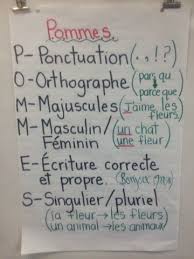 Pommes
P- Ponctuation (. , ! ?)
O- Orthographe (parsqu
parce que)
M- Majuscules (J'aime les
fleurs.)
M- Masculin/ (un chat
Féminin une fleur)
E- Écriture correcte
et propre. (Bonjour)
S- Singulier/pluriel
(la fleur → les fleurs)
un animal → les animaux)